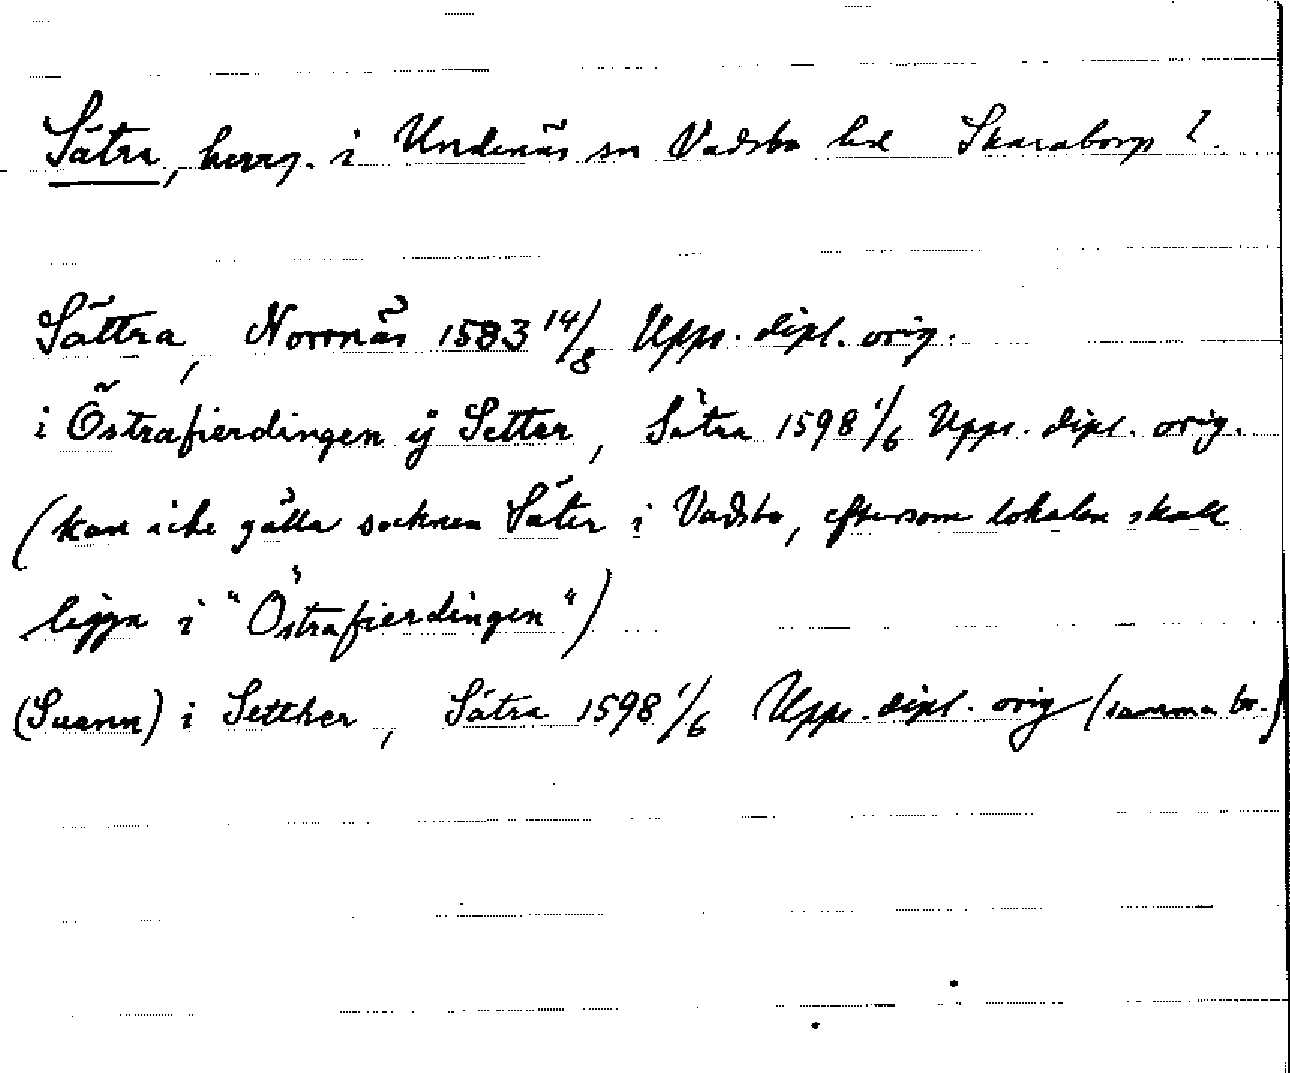 Sätra, herrg. i Undenäs sn Vadsbo hd Skaraborgs l.
Sättra, Norrnäs 1583 14/8 Upps. dipl. orig.
i Östrafierdingen ÿ Setter, Sätra 1598 1/6 Upps. dipl. orig.
(kan icke gälla socknen Säter i Vadsbo, eftersom lokalen skall
ligga i "Östrafierdingen")
(Suenn) i Setther, Sätra 1598 1/6 Upps. dipl. orig (samma br.)